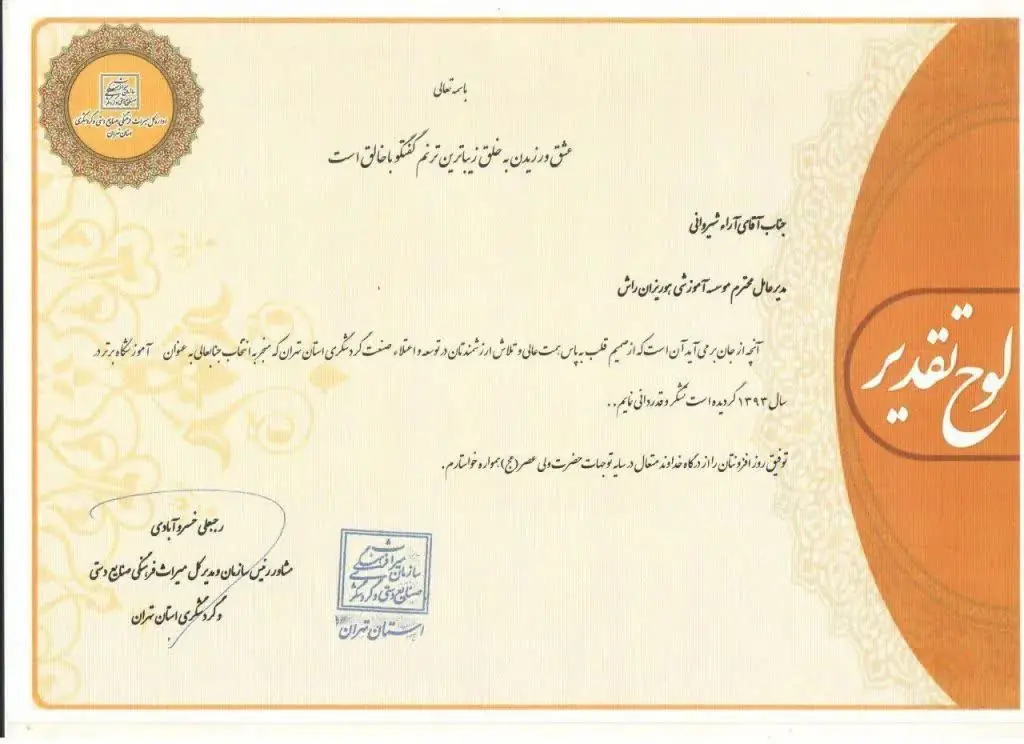 باسمه تعالی
عشق ورزیدن به خلق زیباترین ترنم گفتگو با خالق است
جناب آقای آراء شیروانی
مدیرعامل محترم موسسه آموزشی هوریزان راش
آنچه از جان بر می آید آن است که از صمیم قلب به پاس همت عالی و تلاش ارزشمندتان در توسعه و اعتلاء صنعت گردشگری استان تهران که منجر به انتخاب جنابعالی به عنوان آموزشگاه برتر در
سال ۱۳۹۳ گردیده است تشکر و قدردانی نمایم..
توفیق روز افزونتان را از درگاه خداوند متعال در سایه توجهات حضرت ولی عصر (عج) همواره خواستارم.
لوح تقدیر
رجبعلی خسروآبادی
مشاور رئیس سازمان و مدیرکل میراث فرهنگی صنایع دستی
و گردشگری استان تهران
سازمان میراث فرهنگی
صنایع دستی و گردشگری
استان تهران
اداره کل میراث فرهنگی صنایع دستی و گردشگری
استان تهران